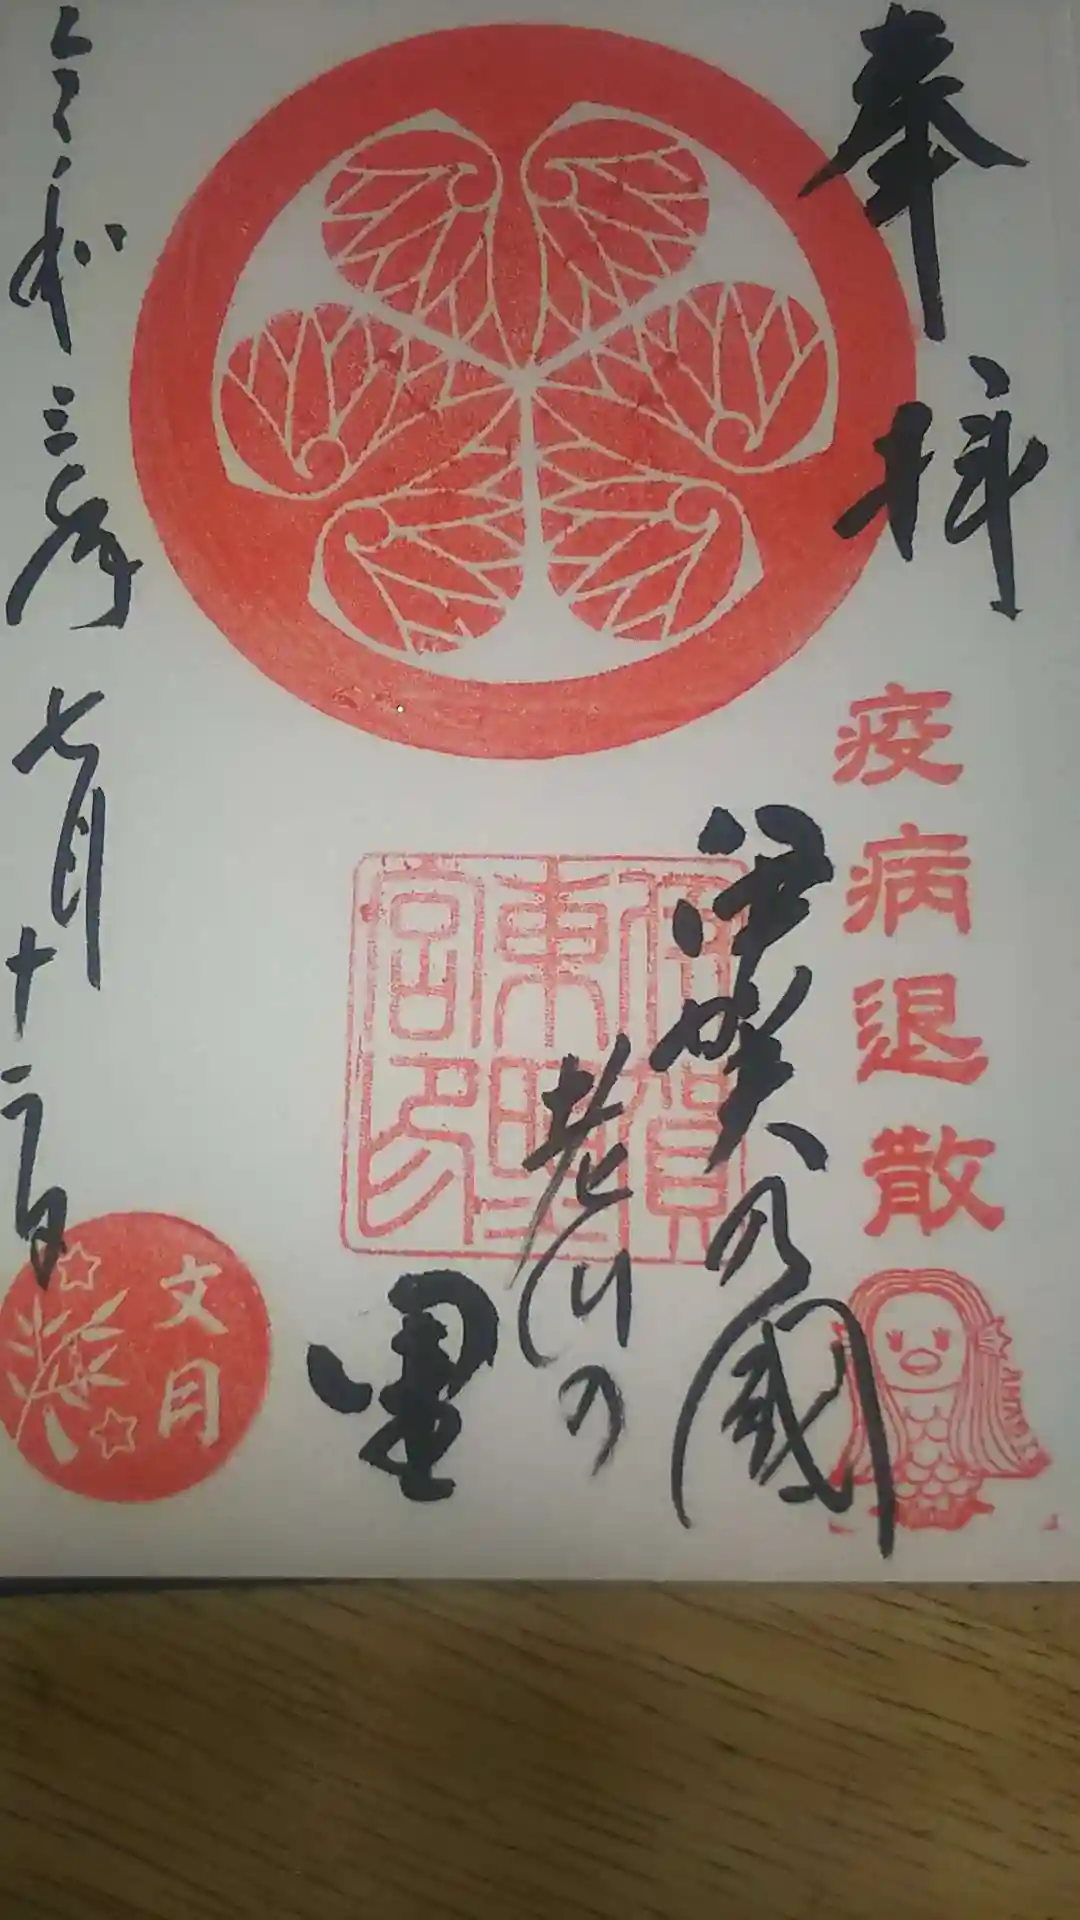 奉拝
疫病退散
伊賀乃國
老川の
里
伊賀
東照
宮印
令和三年七月十二日
文月